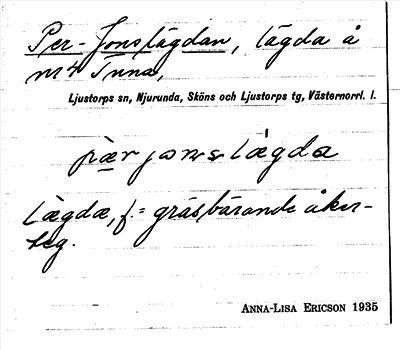 Per-Jonslägdan, lägda å
nr 4 Tuna,
Ljustorps sn, Njurunda, Sköns och Ljustorps tg, Västernorrl. l.
pær jons lægda
Lægdæ, f. = gräsbärande åker-
teg.
ANNA-LISA ERICSON 1935